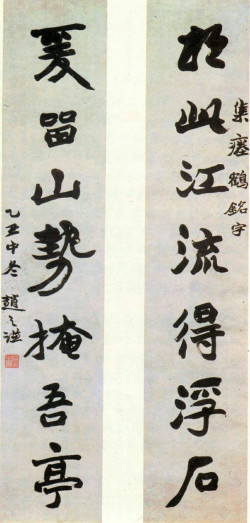 相此江流得浮石
集瘞鶴銘字
爰留山勢掩吾亭
乙丑中冬 趙之謙